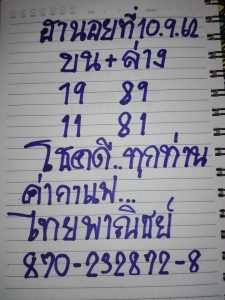 ฮานอยที่10.9.62
บน+ล่าง
19 89
11 81
โชคดี..ทุกท่าน
ค่ากาแฟ...
ไทยพาณิชย์
870-232872-8